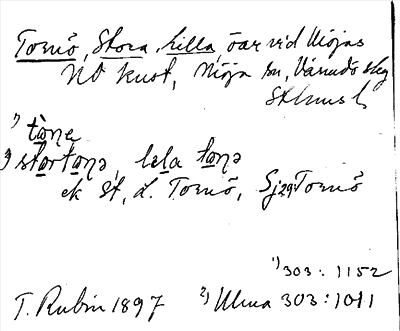 Tornö, Stora, Lilla, öar vid Möjas
NO kust, Möja sn, Värmdö skg
Sthms l
1) tòṇe
2) stortoṇə, lela toṇə
ek St, L. Tornö, Sj 29 Tornö
1) 303: 1152
T. Rubin 1897 2) Ulma 303:1011